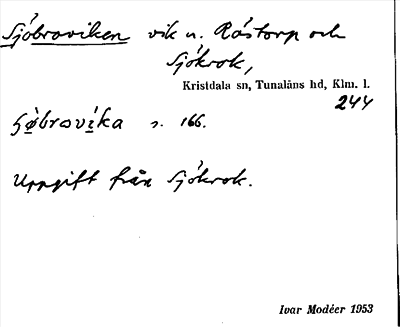 Sjöbroviken vik n. Råstorp och
Sjökrok,
Kristdala sn, Tunaläns hd, Klm. l.
244
s. 166.
Uppgift från Sjökrok.
Ivar Modéer 1953